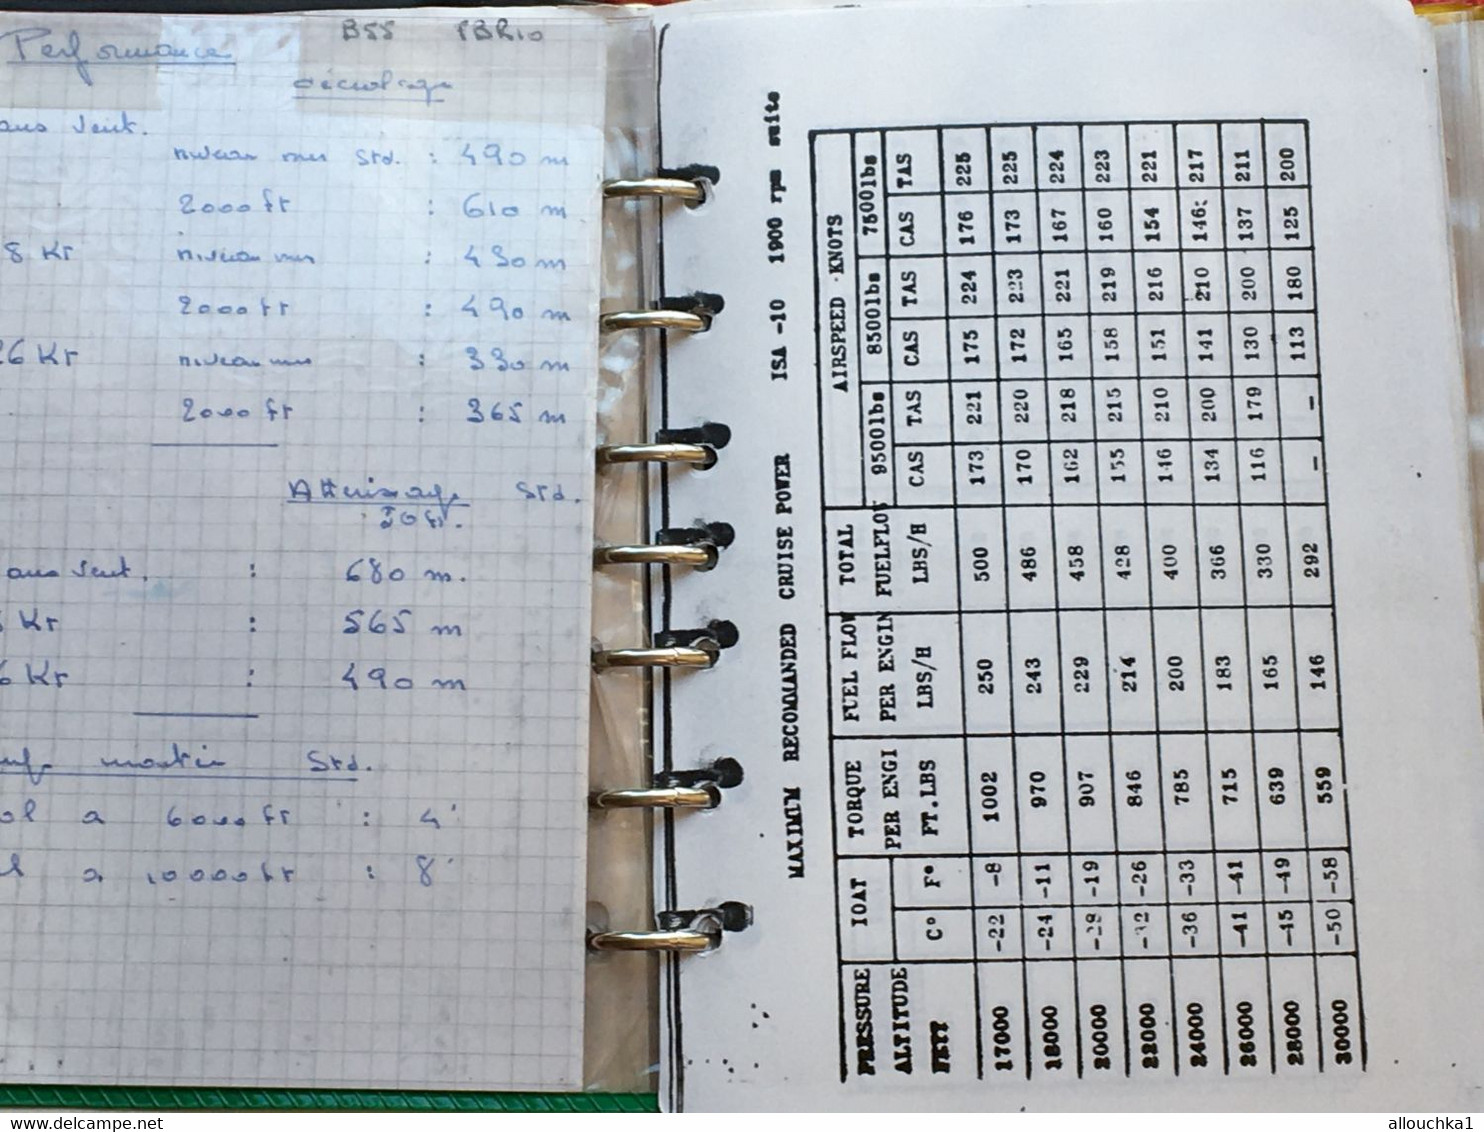 B55 PBR10
Performance
décollage
ans vent.
niveau mer Std. : 490 m
2000 ft : 610 m
8 Kt niveau mer : 430 m
2000 ft : 490 m
26 Kt niveau mer : 330 m
2000 ft : 365 m
Atterissage Std.
50 ft.
ans vent. : 680 m.
Kt : 565 m
6 Kt : 490 m
Std.
ol a 6000 ft : 4'
l a 10000 ft : 8'
MAXIMUM RECOMMANDED CRUISE POWER ISA -10 1900 rpm suite
PRESSURE IOAT TORQUE FUEL FLOW TOTAL AIRSPEED KNOTS
ALTITUDE PER ENGI PER ENGIN FUELFLOW 9500lbs 8500lbs 7500lbs
FEET C° F° FT.LBS LBS/H LBS/H CAS TAS CAS TAS CAS TAS
17000 -22 -8 1002 250 500 173 221 175 224 176 225
18000 -24 -11 970 243 486 170 220 172 223 173 225
20000 -28 -19 907 229 458 162 218 165 221 167 224
22000 -32 -26 846 214 428 155 215 158 219 160 223
24000 -36 -33 785 200 400 146 210 151 216 154 221
26000 -41 -41 715 183 366 134 200 141 210 146 217
28000 -45 -49 639 165 330 116 179 130 200 137 211
30000 -50 -58 559 146 292 - - 113 180 125 200
allouchka1